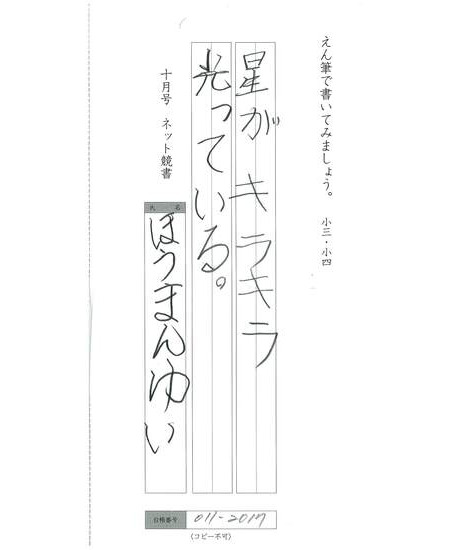 えん筆で書いてみましょう。 小三・小四
星が キラキラ
光っている。
十月号 ネット競書
氏 名
ほうまんゆい
台帳番号 011-2017
(コピー不可)